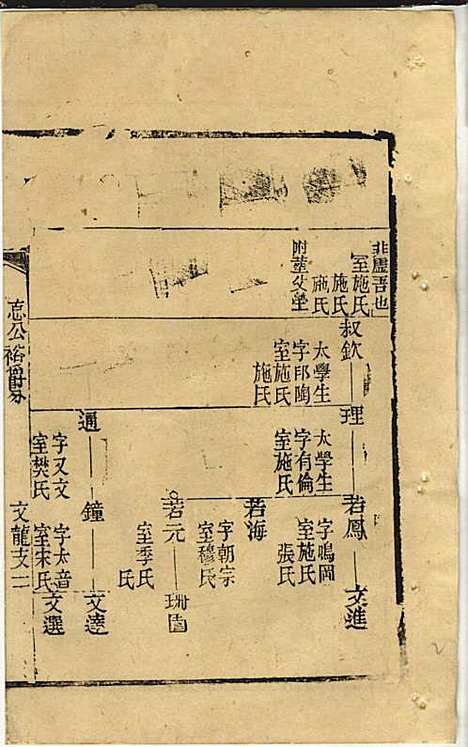 非虛吾也
室施氏
施氏
施氏
附葬父塋
叔欽
太學生
字邱陶
室施氏
施氏
理
太學生
字有倫
室施氏
若鳳
字鳴岡
室施氏
張氏
文進
若海
字朝宗
室穆氏
若元
室季氏
氏
珊
通
字又文
室樊氏
鐘
字太音
室宋氏
文達
文選
忘公裕爵
文龍支二
2